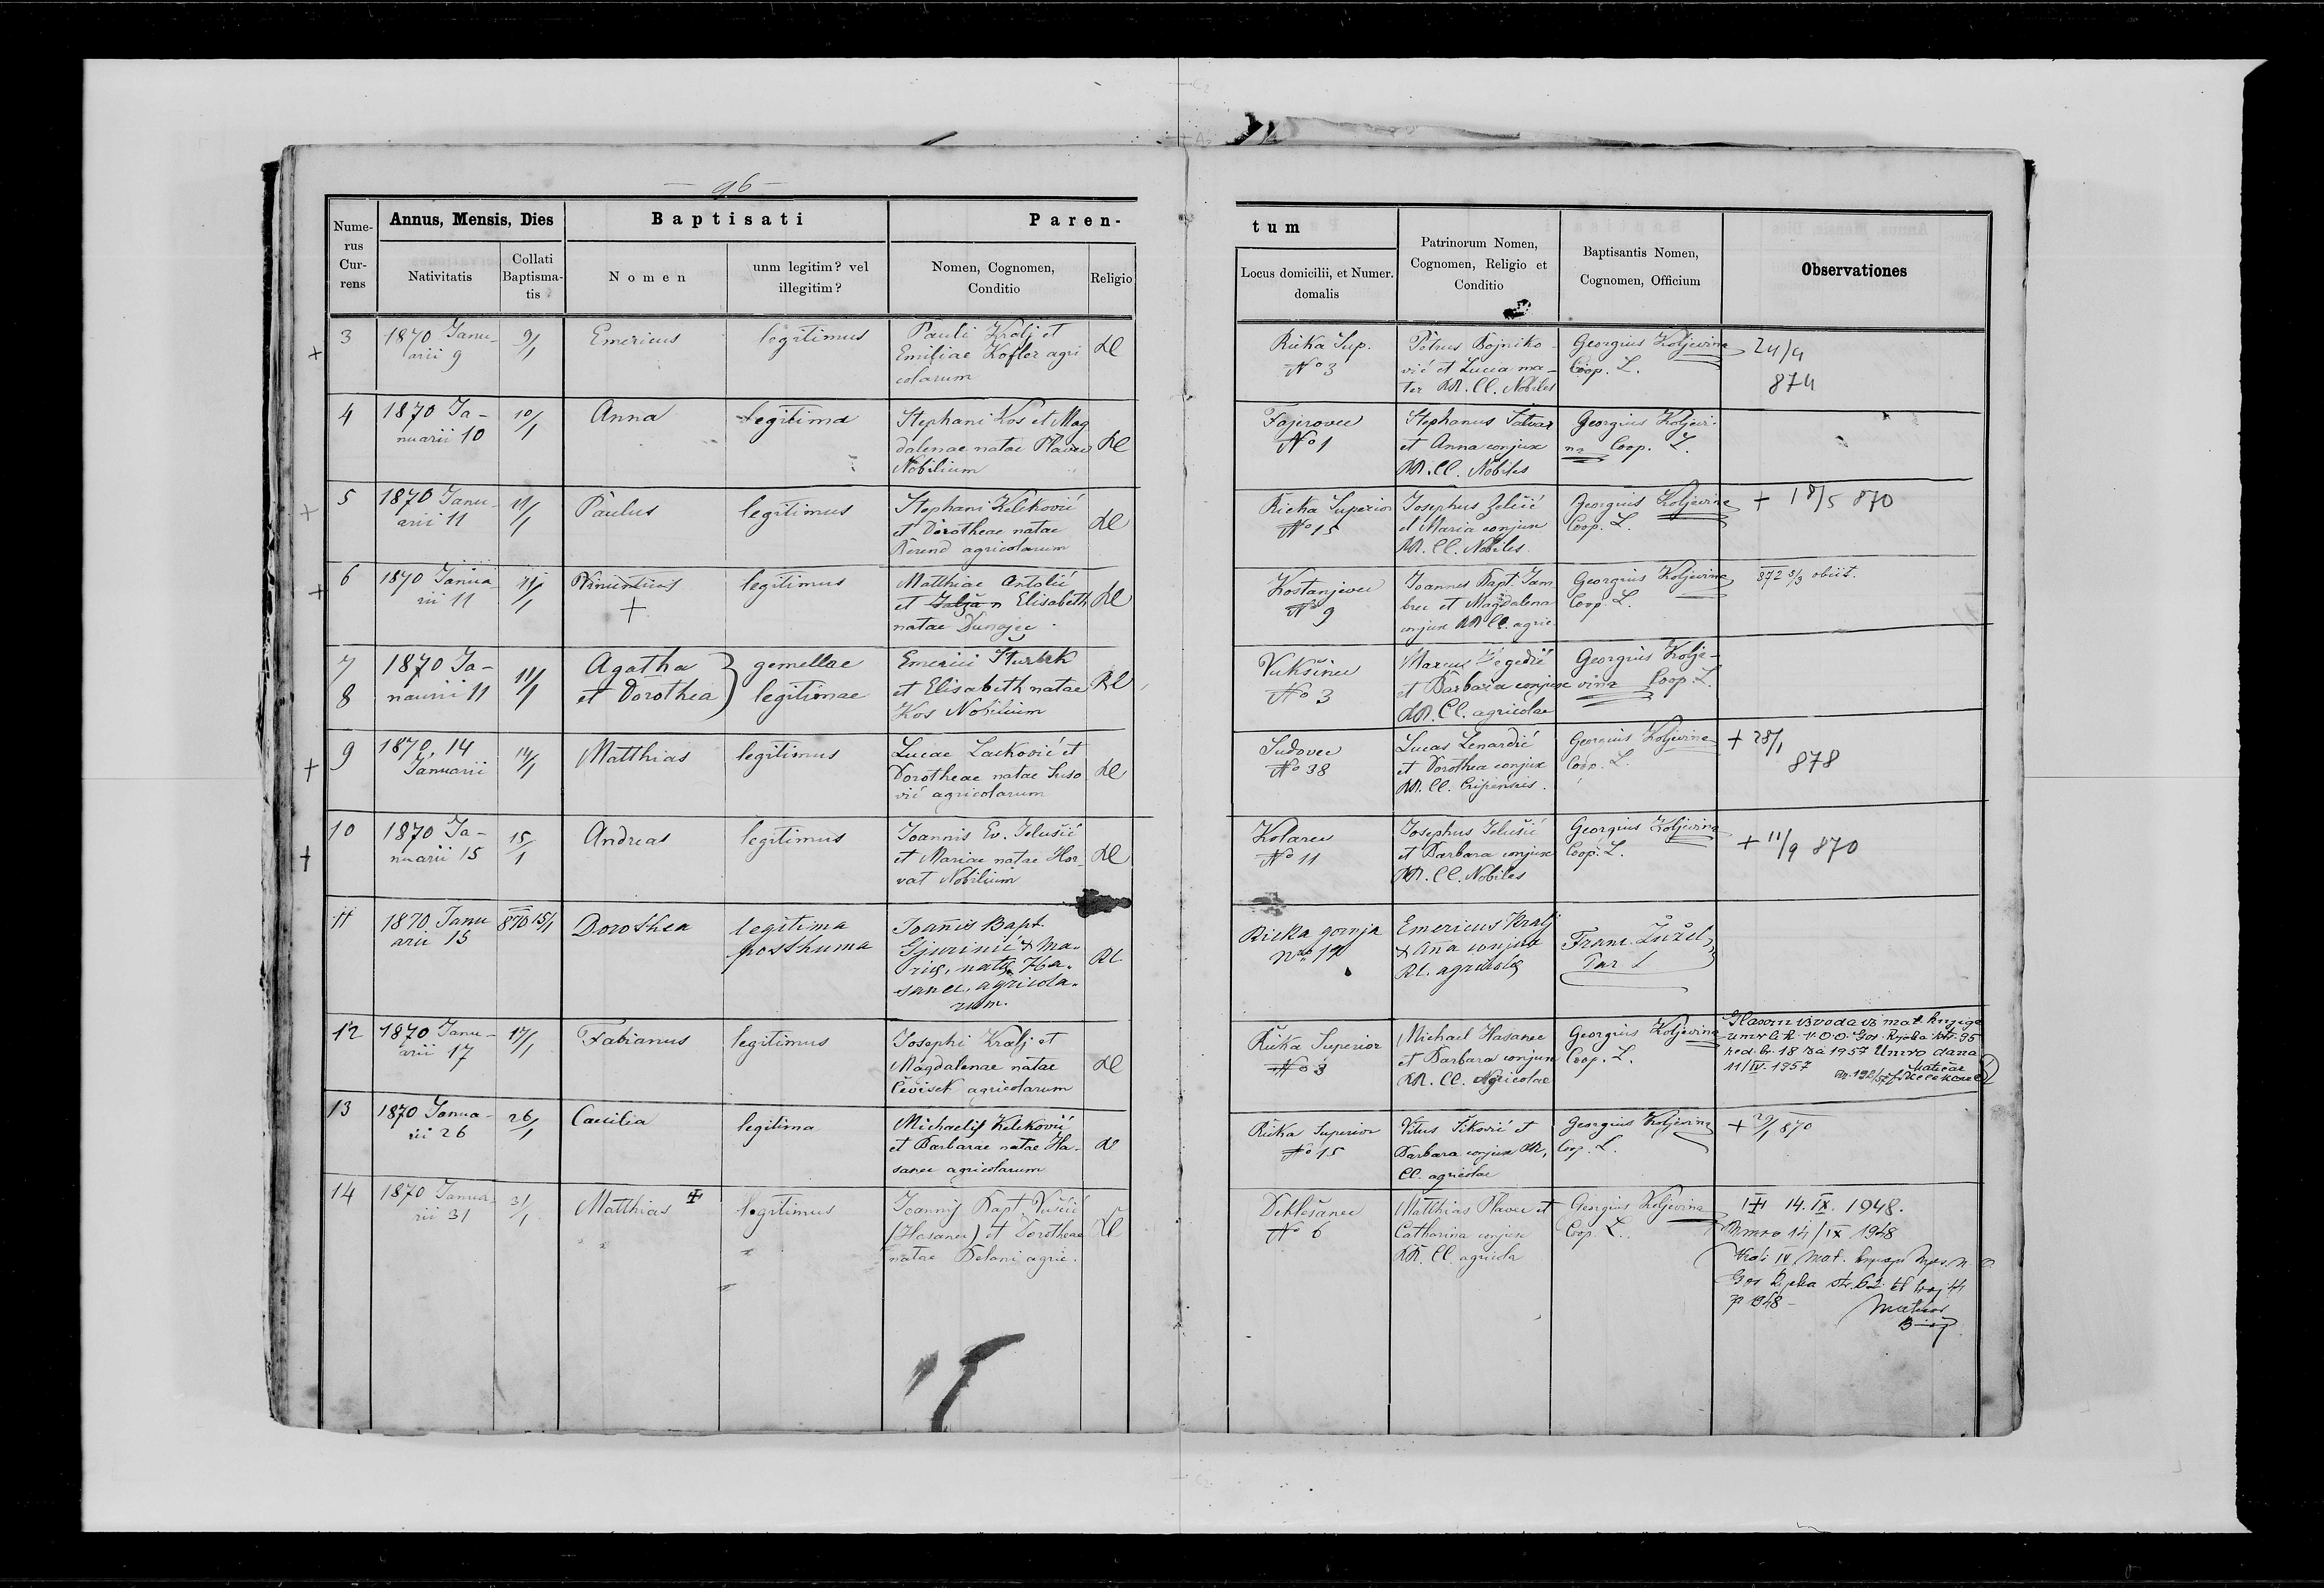 — 96 —
Nume-
rus
Cur-
rens
Annus, Mensis, Dies
Nativitatis
Collati
Baptisma-
tis
Baptisati
Nomen
unm legitim? vel
illegitim?
Paren-
Nomen, Cognomen,
Conditio
Religio
tum
Locus domicilii, et Numer.
domalis
Patrinorum Nomen,
Cognomen, Religio et
Conditio
Baptisantis Nomen,
Cognomen, Officium
Observationes
+ 3
1870 Janu-
arii 9
9/1
Emericus
legitimus
Pauli Kralj et
Emiliae Kofler agri
colarum
Rl
Rieka Sup.
No 3
Petrus Bojniko-
vić et Lucia ma-
ter RR. CC. Nobiles
Georgius Koljevina
Coop. L.
24/9
874
4
1870 Ja-
nuarii 10
10/1
Anna
legitima
Stephani Kos et Mag
dalenae natae Plavec
Nobilium
Rl
Fajerovec
No 1
Stephanus Salvar
et Anna conjux
RR. CC. Nobiles
Georgius Koljevi-
na Coop. L.
+ 5
1870 Janu-
arii 11
11/1
Paulus
legitimus
Stephani Keleković
et Dorotheae natae
Berend agricolarum
Rl
Rieka Superior
No 15
Josephus Zelčić
et Maria conjux
RR. CC. Nobiles
Georgius Koljevina
Coop. L.
+ 18/5 870
+ 6
1870 Janua
rii 11
11/1
Vincentius
+
legitimus
Matthiae Antolić
et Elisabeth
natae Dunajec
Rl
Kostanjevec
No 9
Joannes Bapt. Jam
brec et Magdalena
conjux RR CC. agric
Georgius Koljevina
Coop. L.
872 3/3 obiit.
7
8
1870 Ja-
nuarii 11
11/1
Agatha
et Dorothea
gemellae
legitimae
Emerici Šturbek
et Elisabeth natae
Kos Nobilium
Rl
Vukšinec
No 3
Marcus Gegedić
et Barbara conjux
RR. CC. agricolae
Georgius Kolje-
vina Coop. L.
+ 9
1870, 14
Januarii
14/1
Matthias
legitimus
Lucae Lacković et
Dorotheae natae Suso
vić agricolarum
Rl
Sudovec
No 38
Lucas Lenardić
et Dorothea conjux
RR. CC. Crisienses.
Georgius Koljevina
Coop. L.
+ 28/1
878
+ 10
1870 Ja-
nuarii 15
15/1
Andreas
legitimus
Joannis Ev. Jelušić
et Mariae natae Hor-
vat Nobilium
Rl
Kolarec
No 11
Josephus Jelušić
et Barbara conjux
RR. CC. Nobiles
Georgius Koljevina
Coop. L.
+ 11/9 870
11
1870 Janu
arii 15
870 15/1
Dorothea
legitima
posthuma
Joanis Bapt.
Gjurinić & Ma-
rię, natę Ha-
sanec, agricola-
rum.
Rl.
Ricka gornja
No 12
Emericus Kralj
& Ana conjux
Rl. agricolę
Franc. Žužel
Par L
12
1870 Janu-
arii 17
17/1
Fabianus
legitimus
Josephi Kralj et
Magdalenae natae
Čevisek agricolarum
Rl
Rieka Superior
No 3
Michael Hasanec
et Barbara conjux
RR. CC. Agricolae
Georgius Koljevina
Coop. L.
Glasom izvoda iz mat. knjige
umrlih N.O.O. Gor. Rijeka str. 95
red. br. 18 za 1957 Umro dana
11/IV. 1957
Matičar
13
1870 Janua-
rii 26
26/1
Caecilia
legitima
Michaelis Keleković
et Barbarae natae Ha-
sanec agricolarum
Rl
Rieka Superior
No 15
Vitus Šiković et
Barbara conjux RR,
CC. agricolae
Georgius Koljevina
Coop. L.
+ 29/1 870
14
1870 Janua
rii 31
31/1
Matthias +
legitimus
Joannis Bapt. Vučić
(Hasanec) et Dorotheae
natae Delani agric.
Rl
Deklešanec
No 6
Matthias Plavec et
Catharina conjux
RR. CC. agricolae
Georgius Koljevina
Coop. L.
+ 14. IX. 1948.
Umro 14/IX 1948
Mat.
Gor Rijeka str. 62
1948
Matičar